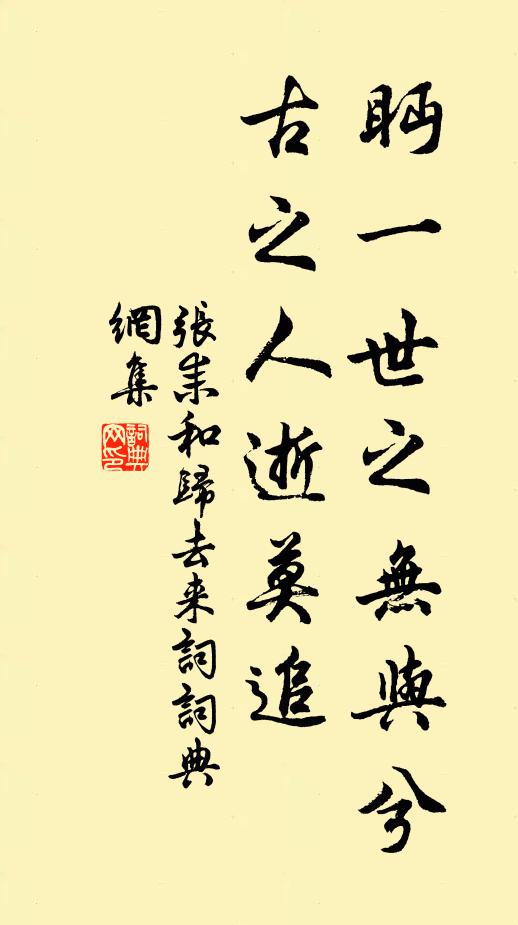 眄一世之無與兮
古之人逝莫追
張耒和歸去来詞詞典
網集
詞典
网印